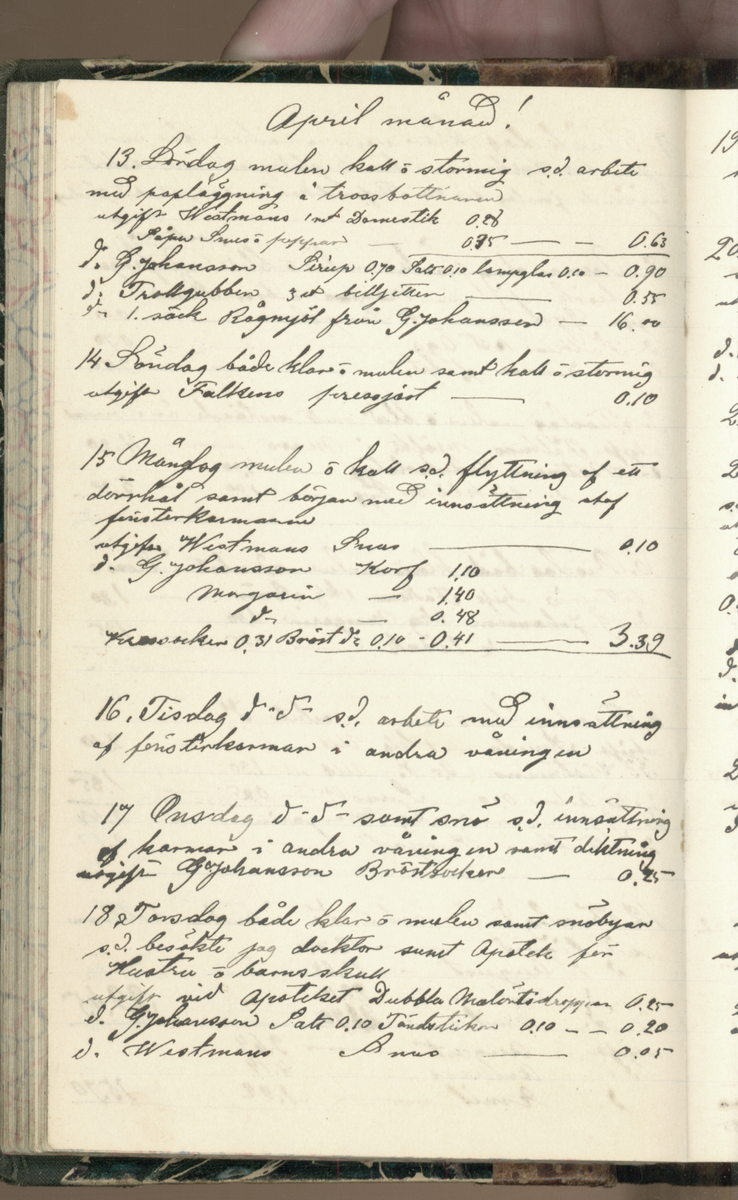 April månad!
13. Lördag mulen kall ō stormig s.d. arbete
med papläggning å trossbottnarna
utgift Westmans 1 mt Domestik 0.28
Såpa Snus ō peppar — 0.35 — — 0.63
d. G. Johansson Sirup 0.70 Salt 0.10 lampglas 0.10 — 0.90
d: Trollgubben 3 st billjetter — 0.55
d- 1. säck Rågmjöl från G. Johansson — 16.00
14 Söndag både klar ō mulen samt kall ō stormig
utgift Falkens pressjäst — 0.10
15 Måndag mulen ō kall s.d. flyttning af ett
dörrhål samt början med innsättning utaf
fönsterkarmarne
utgift Westmans Snus — 0.10
d. G. Johansson Korf 1.10
Margarin — 1.40
d- — 0.48
0.31 Bröst d: 0.10 - 0.41 — 3.39
16. Tisdag d- d- s.d. arbete med innsättning
af fönsterkarmar i andra våningen
17 Onsdag d- d- samt snö s.d. innsättning
af karmar i andra våningen samt diktning
utgift G Johansson Bröstsocker — 0.25
18 Torsdag både klar ō mulen samt snöbyar
s.d. besökte jag docktor samt Apotek för
Hustru ō barns skull
utgift vid Apoteket Dubbla Malörtsdroppar 0.25
d. G. Johansson Salt 0.10 Tändstikor 0.10 — — 0.20
d. Westmans Snus — 0.05